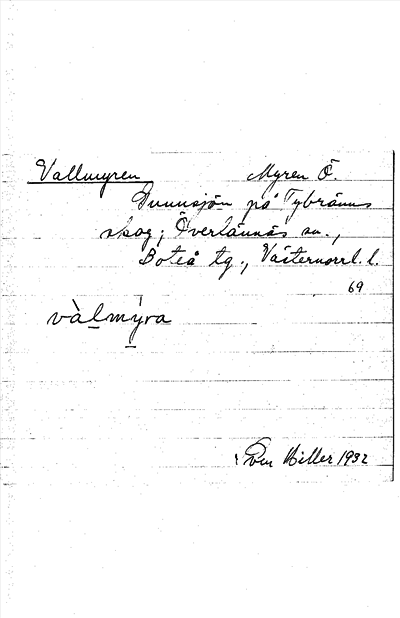 Vallmyren Myren Ö.
Dunnsjön på Tybränns
skog; Överlännäs sn.,
Boteå tg., Västernorrl. l.
69
vàlmýra
Sven Hiller 1932